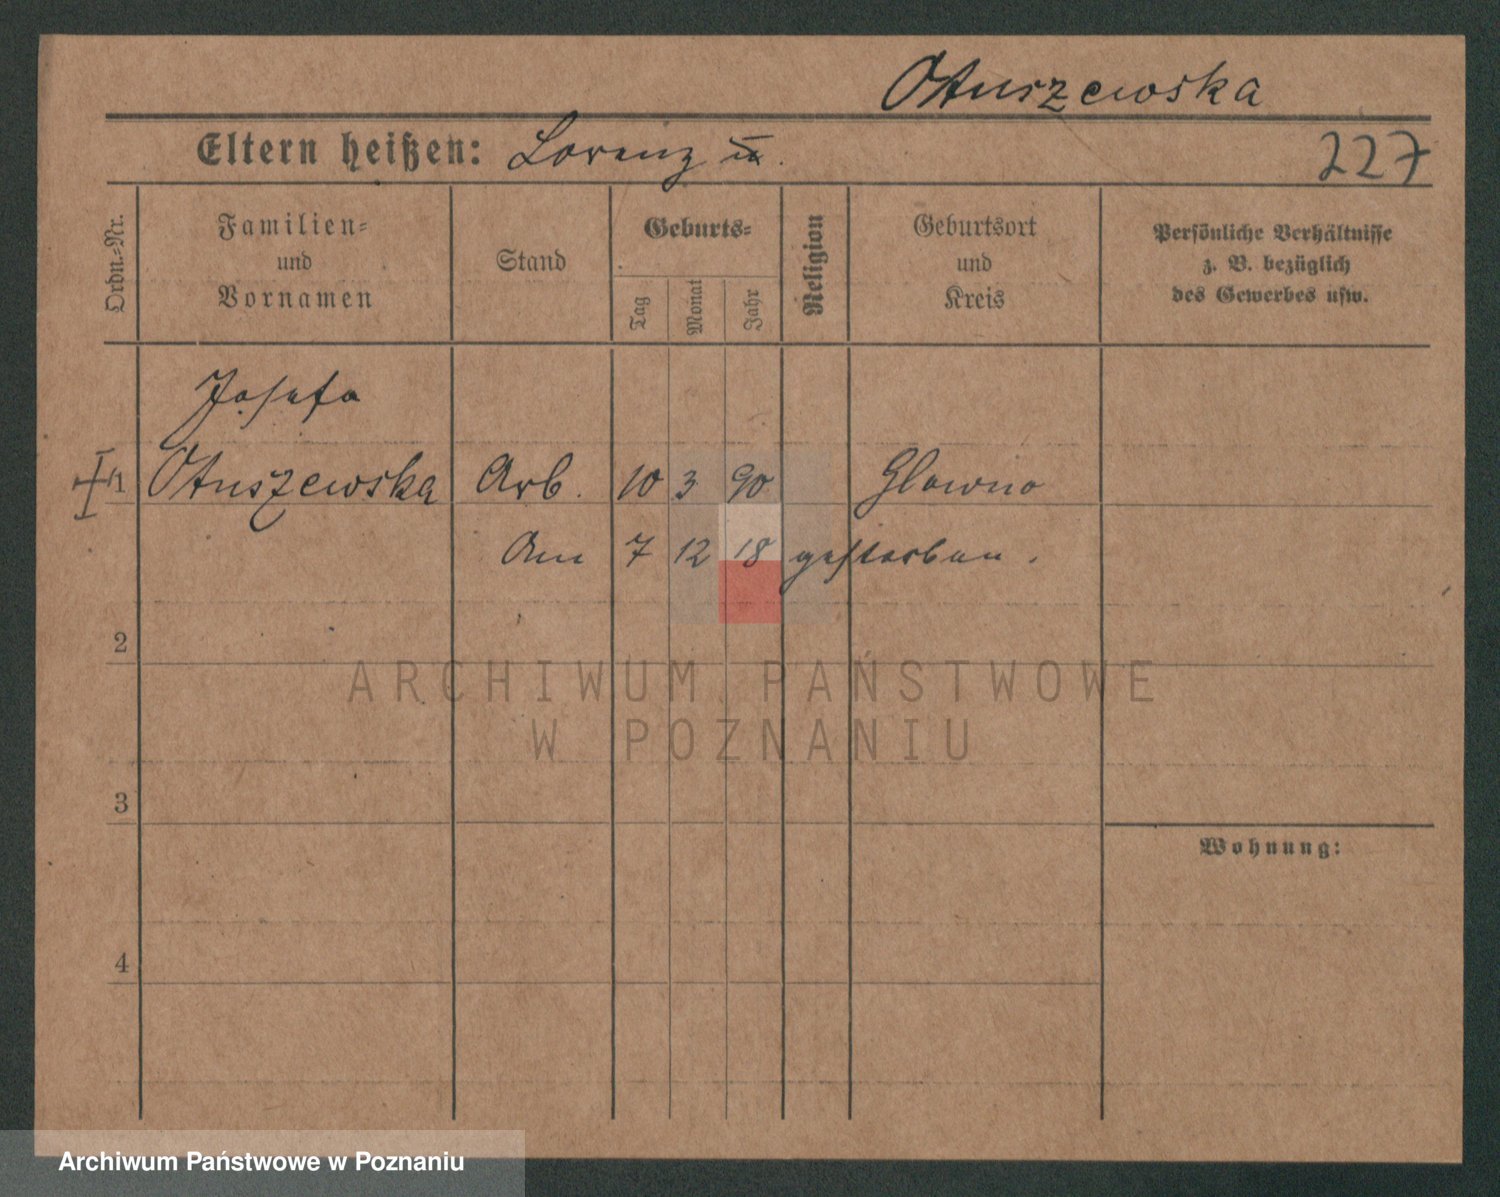 Otuszewska
Eltern heißen: Lorenz u.
227
Ordn.-Nr.
Familien-
und
Vornamen
Stand
Geburts-
Tag
Monat
Jahr
Religion
Geburtsort
und
Kreis
Persönliche Verhältnisse
z. B. bezüglich
des Gewerbes usw.
Josefa
1 Otuszewska Arb. 10 3 90 Glowno
Am 7 12 18 gestorben.
2
ARCHIWUM PAŃSTWOWE
W POZNANIU
3
Wohnung:
4
Archiwum Państwowe w Poznaniu